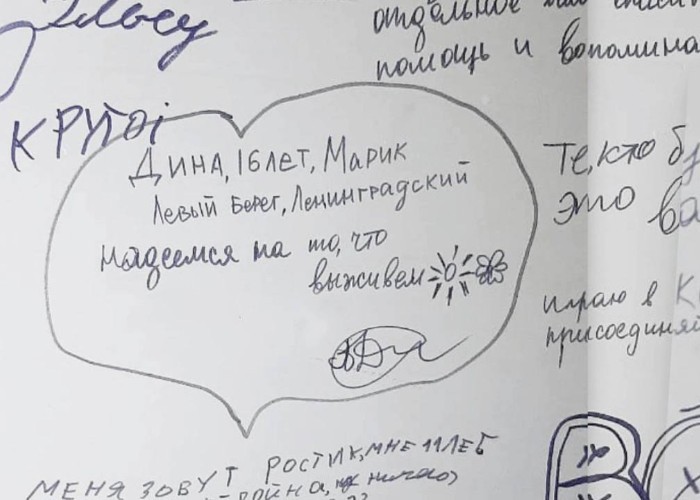 отдельное
помощь и вопомина
КРУТО!
Дина, 16 лет, Марик
Левый берег, Ленинградский
надеемся на то, что
выживем
Те, кто
это
играю в К
присоединяй
МЕНЯ ЗОВУТ РОСТИК, МНЕ 11 ЛЕТ
ВОЙНА,